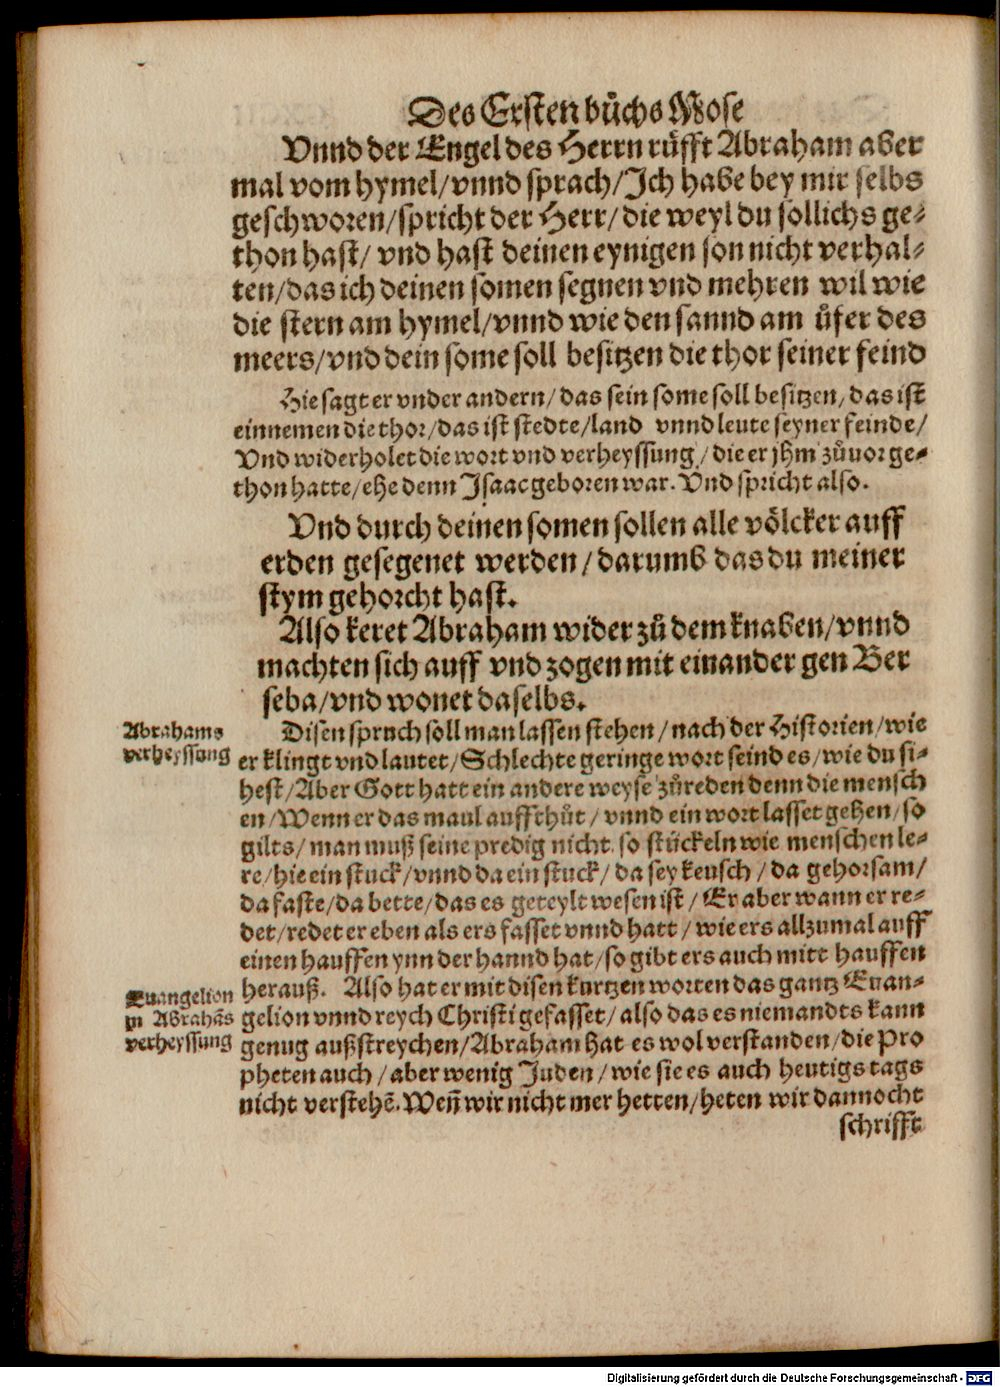 Des Ersten bůchs Mose
Vnnd der Engel des Herrn růfft Abraham aber
mal vom hymel/vnnd sprach/Ich habe bey mir selbs
geschworen/spricht der Herr/die weyl du sollichs ge-
thon hast/ vnd hast deinen eynigen son nicht verhal-
ten/das ich deinen somen segnen vnd mehren wil wie
die stern am hymel/vnnd wie den sannd am ůfer des
meers/vnd dein some soll besitzen die thor seiner feind
Hie sagt er vnder andern/das sein some soll besitzen/das ist
einnemen die thor/das ist stedte/land vnnd leute seyner feinde/
Vnd widerholet die wort vnd verheyssung/die er jhm zůuor ge-
thon hatte/ehe denn Isaac geboren war. Vnd spricht also.
Vnd durch deinen somen sollen alle völcker auff
erden gesegenet werden/darumb das du meiner
stym gehorcht hast.
Also keret Abraham wider zů dem knaben/vnnd
machten sich auff vnd zogen mit einander gen Ber
seba/vnd wonet daselbs.
Abrahams
verheyssung
Disen spruch soll man lassen stehen/nach der Historien/wie
er klingt vnd lautet/Schlechte geringe wort seind es/wie du si-
hest/Aber Gott hatt ein andere weyse zůreden denn die mensch
en/Wenn er das maul auffthůt/vnnd ein wort lasset gehen/so
gilts/man muß seine predig nicht so stückeln wie menschen le-
re/hie ein stuck/vnnd da ein stuck/da sey keusch/da gehorsam/
da faste/da bette/das es geteylt wesen ist/Er aber wann er re-
det/redet er eben als ers fasset vnnd hatt/wie ers allzumal auff
einen hauffen ynn der hannd hat/so gibt ers auch mitt hauffen
herauß. Also hat er mit disen kurtzen worten das gantz Euan-
gelion vnnd reych Christi gefasset/also das es niemandts kann
genug außstreychen/Abraham hat es wol verstanden/die Pro
pheten auch/aber wenig Juden/wie sie es auch heutigs tags
nicht verstehē. Weñ wir nicht mer hetten/heten wir dannocht
Euangelion
in Abrahās
verheyssung
schrifft
Digitalisierung gefördert durch die Deutsche Forschungsgemeinschaft - DFG